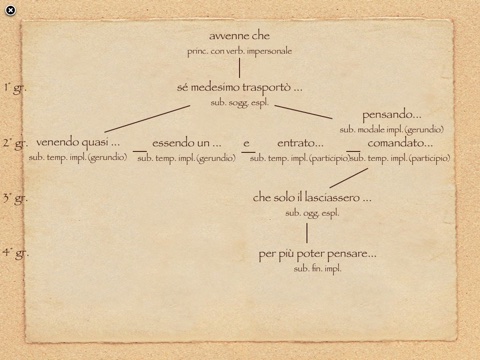 avvenne che
princ. con verb. impersonale
1° gr.
sé medesimo trasportò ...
sub. sogg. espl.
pensando...
sub. modale impl.(gerundio)
2° gr.
venendo quasi ... — essendo un ... e entrato... — comandato...
sub. temp. impl.(gerundio) sub. temp. impl.(gerundio) sub. temp. impl.(participio) sub. temp. impl.(participio)
3° gr.
che solo il lasciassero ...
sub. ogg. espl.
4° gr.
per più poter pensare...
sub. fin. impl.